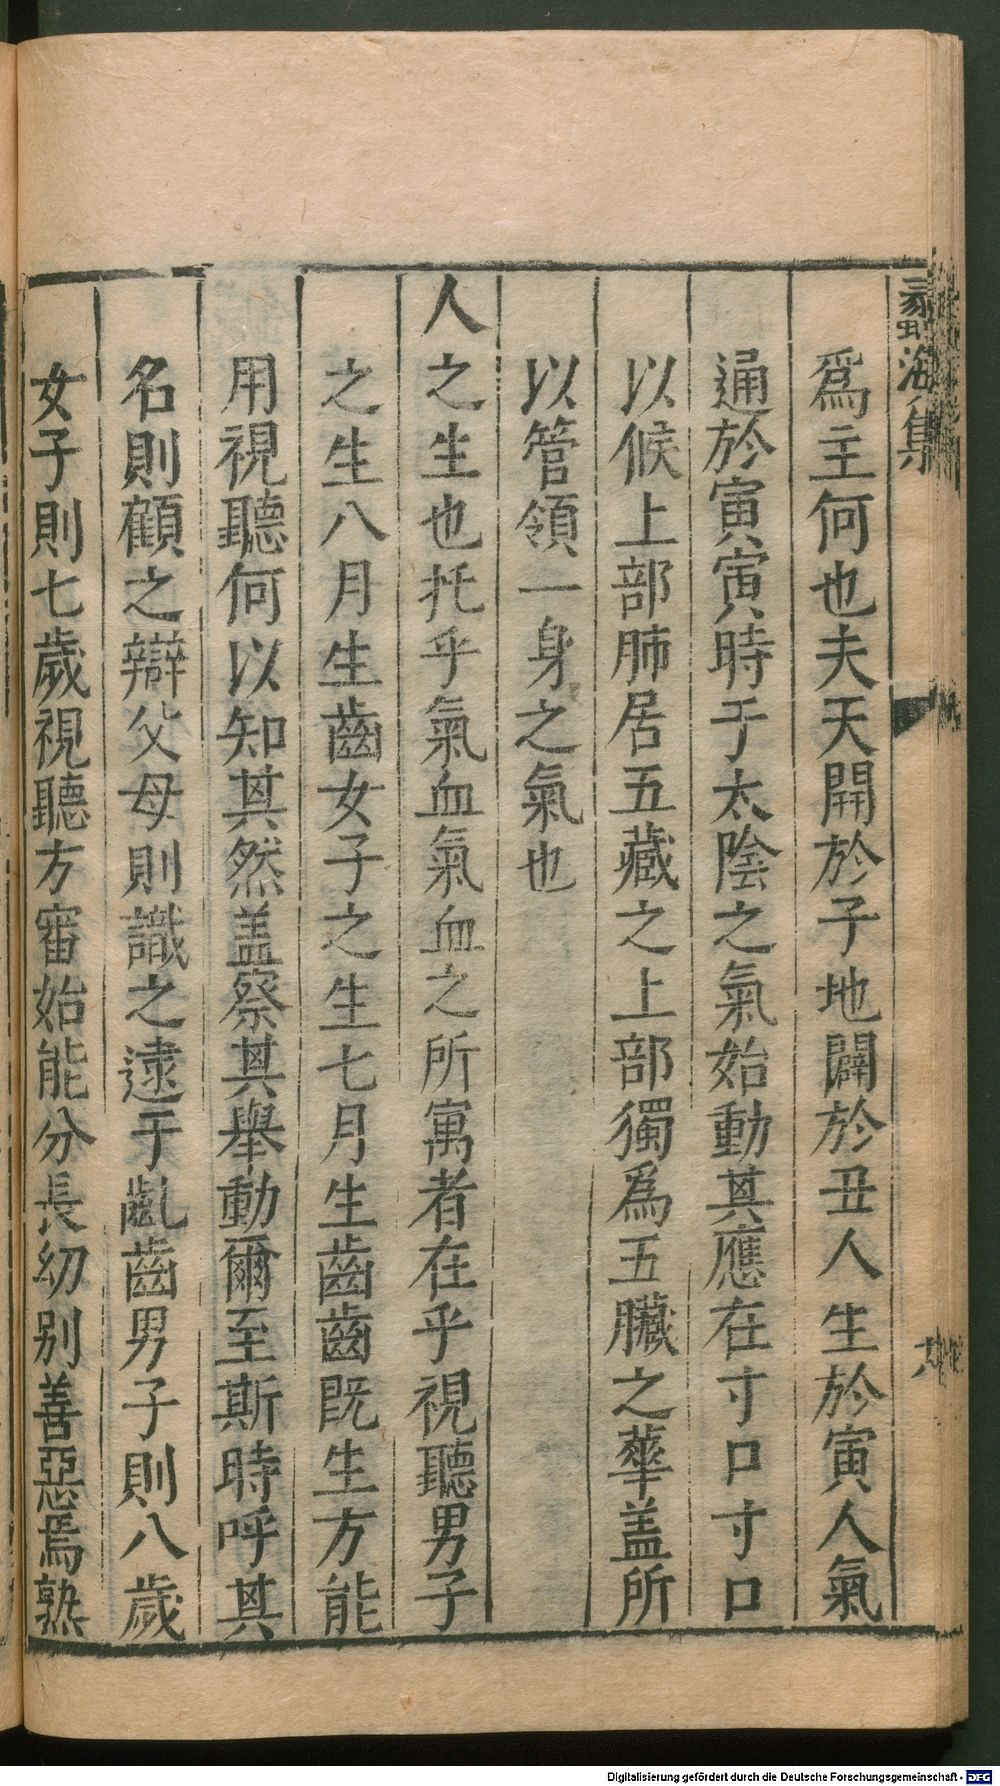 蠡海集
爲主何也夫天開於子地闢於丑人生於寅人氣
通於寅寅時于太陰之氣始動其應在寸口寸口
以候上部肺居五藏之上部獨爲五臟之華盖所
以管領一身之氣也
人之生也托乎氣血氣血之所寓者在乎視聽男子
之生八月生齒女子之生七月生齒齒既生方能
用視聽何以知其然盖察其舉動爾至斯時呼其
名則顧之辯父母則識之逮于齓齒男子則八歲
女子則七歲視聽方審始能分長幼别善惡焉熟
Digitalisierung gefördert durch die Deutsche Forschungsgemeinschaft - DFG